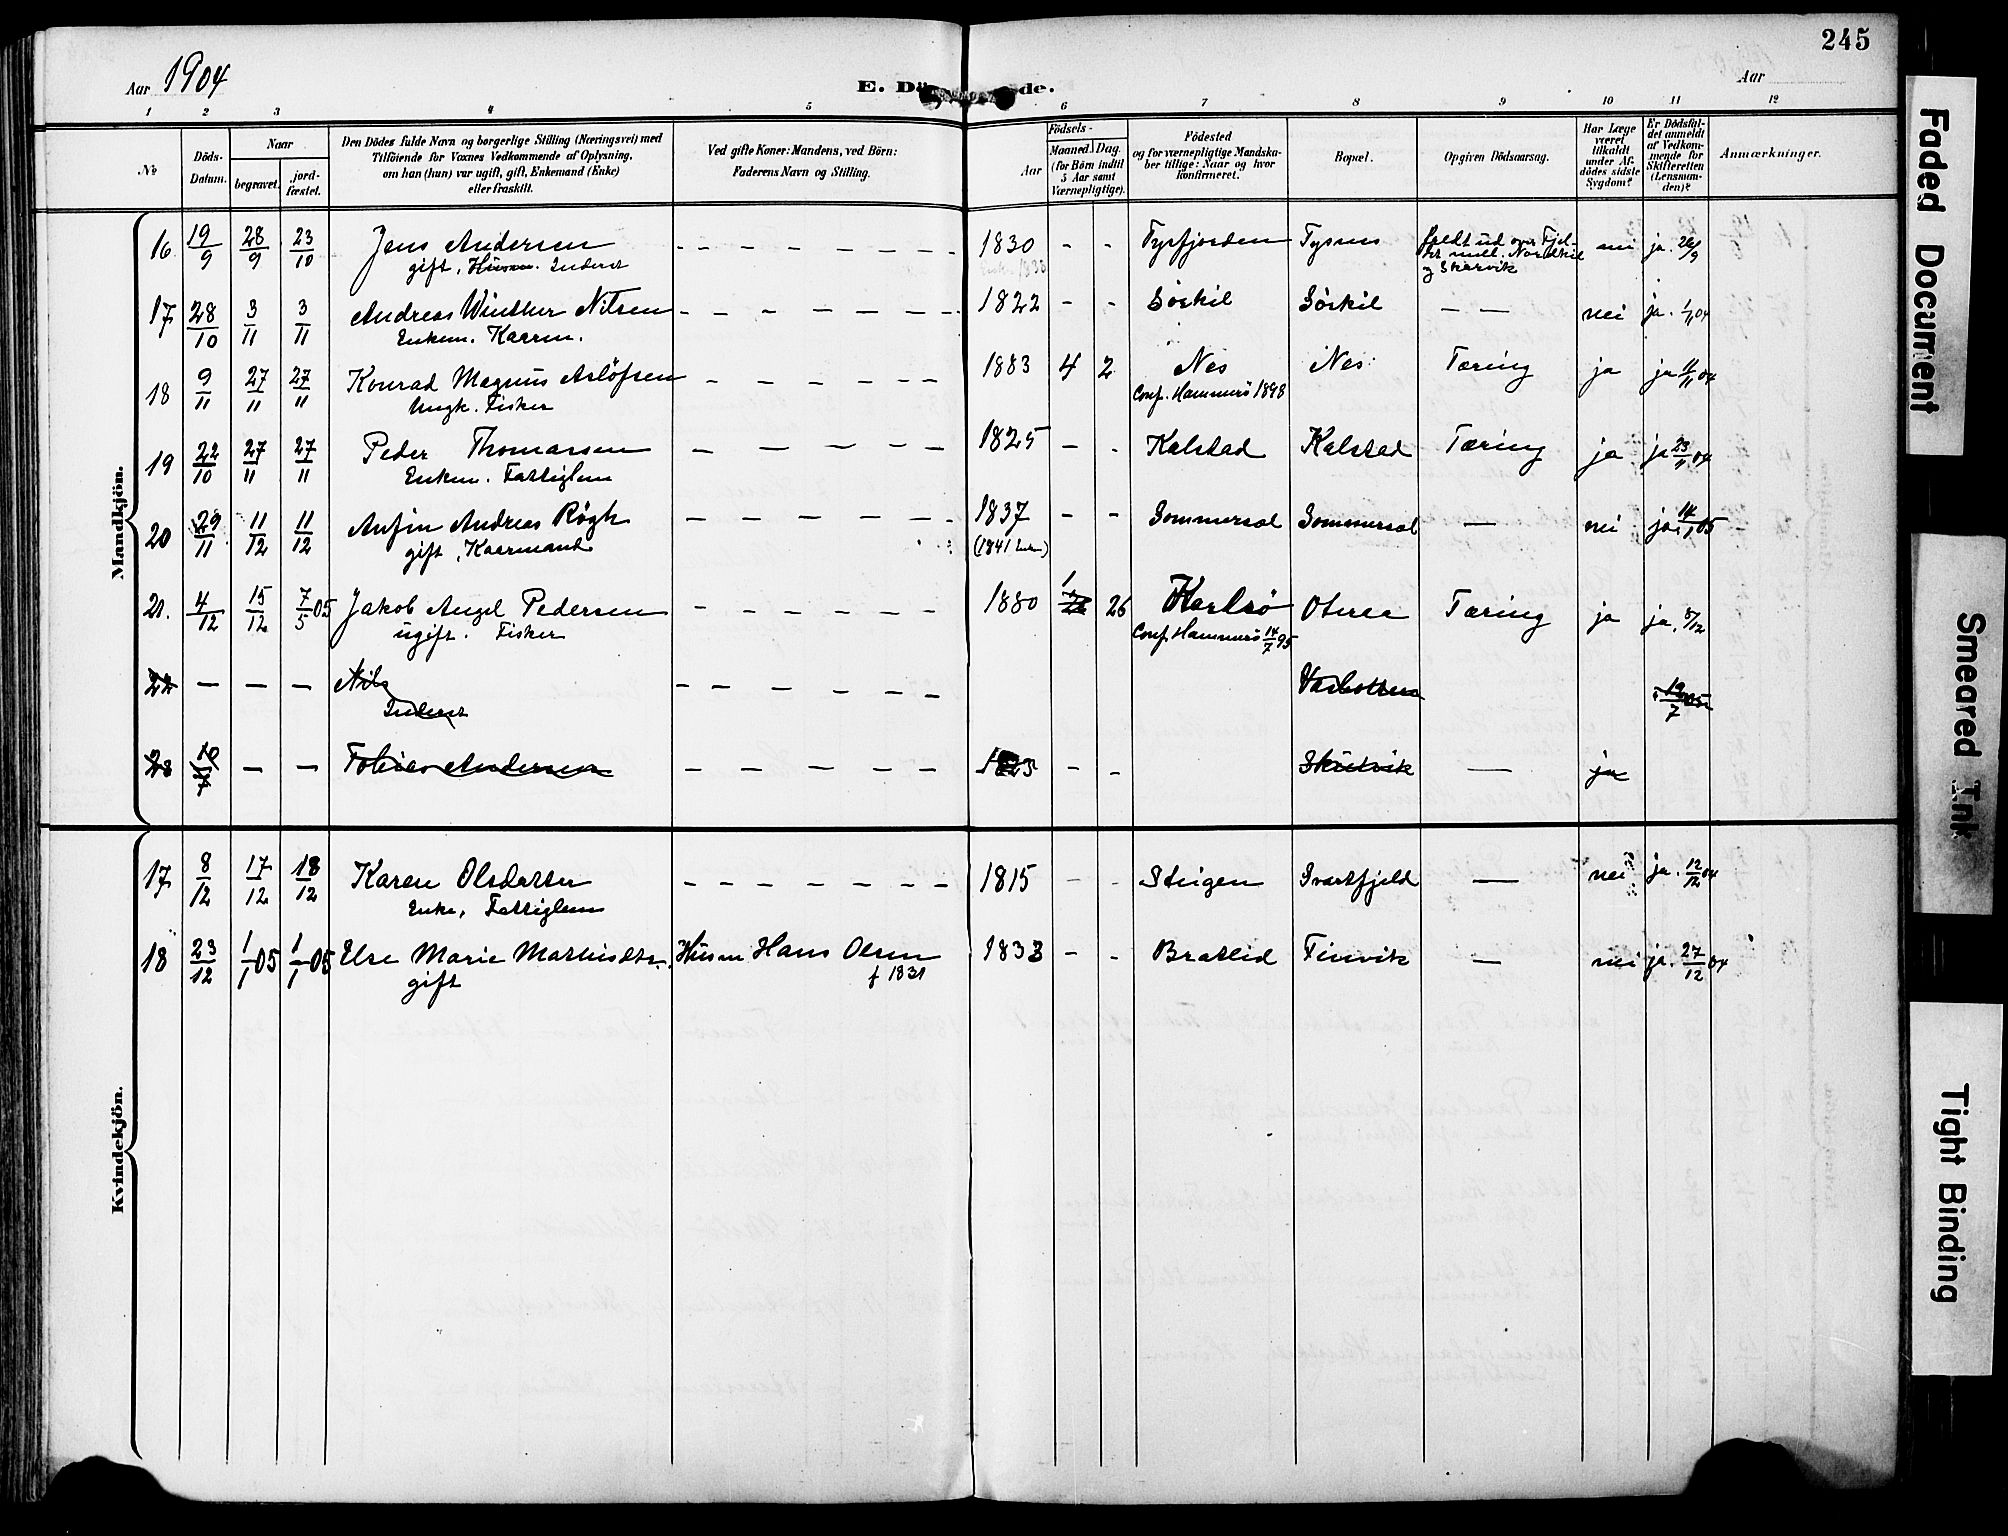 245
Aar 1904
E. Dö de.
Aar
1 2 3 4 5 6 7 8 9 10 11 12
№
Döds-Datum.
Naar
begravet.
jord-fæstet.
Den Dödes fulde Navn og borgerlige Stilling (Næringsvei) med
Tilföiende for Voxnes Vedkommende af Oplysning,
om han (hun) var ugift, gift, Enkemand (Enke)
eller fraskilt.
Ved gifte Koner: Mandens, ved Börn:
Faderens Navn og Stilling.
Födsels-
Aar
Maaned. Dag.
(for Börn indtil
5 Aar samt
Værnepligtige).
Födested
og for værnepligtige Mandska-
ber tillige: Naar og hvor
konfirmeret.
Bopæl.
Opgiven Dödsaarsag.
Har Læge
været
tilkaldt
under Af-
dödes sidste
Sygdom?
Er Dödsfal-
det anmeldt
af Vedkom-
mende for
Skifteretten
(Lensman-
den)?
Anmærkninger.
Mandkjön.
16 19/9 28/9 23/10 Jens Andersen - - - - - - - 1830 - - Tysfjorden Tysnes faldt ud over Fjel- nei ja 26/9
gift, Husm. Inderst
det mell. Nordkil
og Skarvik
17 28/10 3/11 3/11 Andreas Winther Nilsen - - - - - - - 1822 - - Sörkil Sörkil - - nei ja. 1/11 04
Enkem. Kaarm.
18 9/11 27/11 27/11 Konrad Magnus Aslöfsen - - - - - - 1883 4 2 Nes Nes Tæring ja ja 11/11 04
Ungk. Fisker
Conf. Hammerö 1898
19 22/10 27/11 27/11 Peder Thomassen - - - - - - 1825 - - Kalstad Kalstad Tæring ja ja 23/11 04
Enkem. Fattiglem
20 29/11 11/12 11/12 Anfin Andreas Rögh - - - - - - - 1837 - - Sommersel Sommersel - nei ja 14/1 05
gift, Kaarmand
(1841 )
21. 4/12 15/12 7/5 05 Jakob Angel Pedersen - - - - - - 1880 1 26 Karlsö Oteraa Tæring ja ja. 8/12
ugift. Fisker
Conf. Hammerö 14/7 95
22 - - - Nils - - - - - - - 19/7 05
Inderst
23 - - Tobias Andersen - - - - - - 1825 - - Skutvik - ja
Kvindekjön.
17 8/12 17/12 18/12 Karen Olsdatter - - - - - - - - 1815 - - Steigen Svartfjeld - nei ja. 12/12 04
Enke, Fattiglem
18 23/12 1/1 05 1/1 05 Else Marie Mathisdtr. Husm Hans Olsen 1833 - - Bratlid Finvik - nei ja. 27/12 04
gift
f 1831
Faded Document
Smeared Ink
Tight Binding